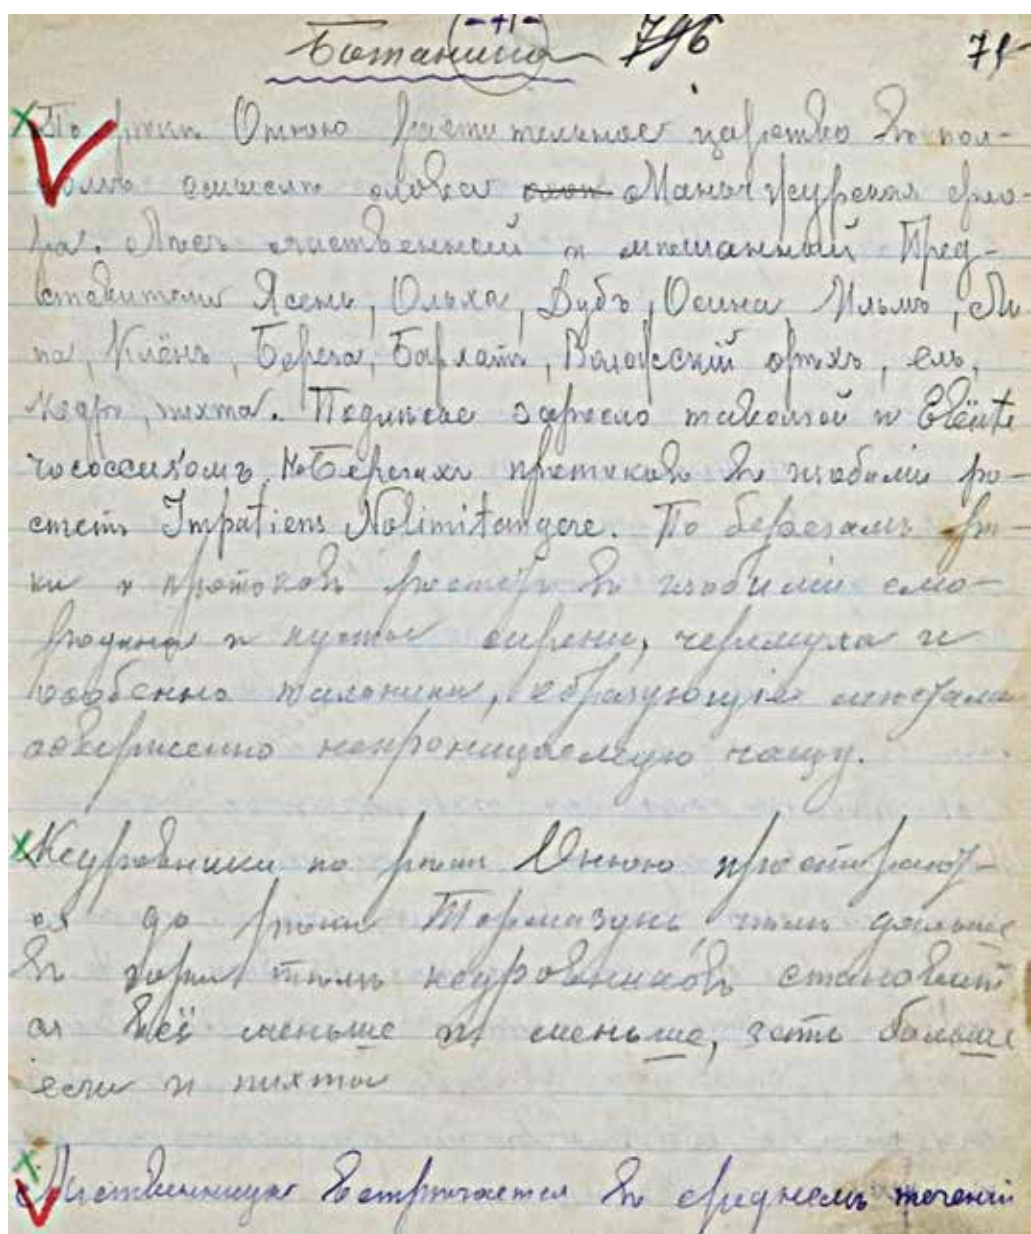 Ботаника 796 71
-41-
По рѣкѣ Онюю растительное царство въ пол-
номъ смыслѣ слова Маньчжурская фло-
ра. Лѣсъ лиственный и мѣшанный Пред-
ставители Ясень, Ольха, Дубъ, Осина, Ильмъ, Ли
па, Клёнъ, Береза, Бархатъ, Волосскій орѣхъ, ель,
Кедръ, пихта. Подлѣсье заросло таволгой и
На Берегахъ протоковъ въ изобиліи ро-
стетъ Impatiens Nolimitangere. По берегамъ рѣ-
ки и протоковъ растетъ въ изобиліи смо-
родина и кусты сирени, черемуха и
особенно тальники, образующіе мѣстами
совершенно непроницаемую чащу.
Кедровники по рѣкѣ Онюю простирают-
ся до рѣки Тормазунь чѣмъ дальше
въ горы тѣмъ кедровниковъ становит
ся всё меньше и меньше, зато больше
ели и пихты
Лиственница встрѣчается въ среднемъ теченіи